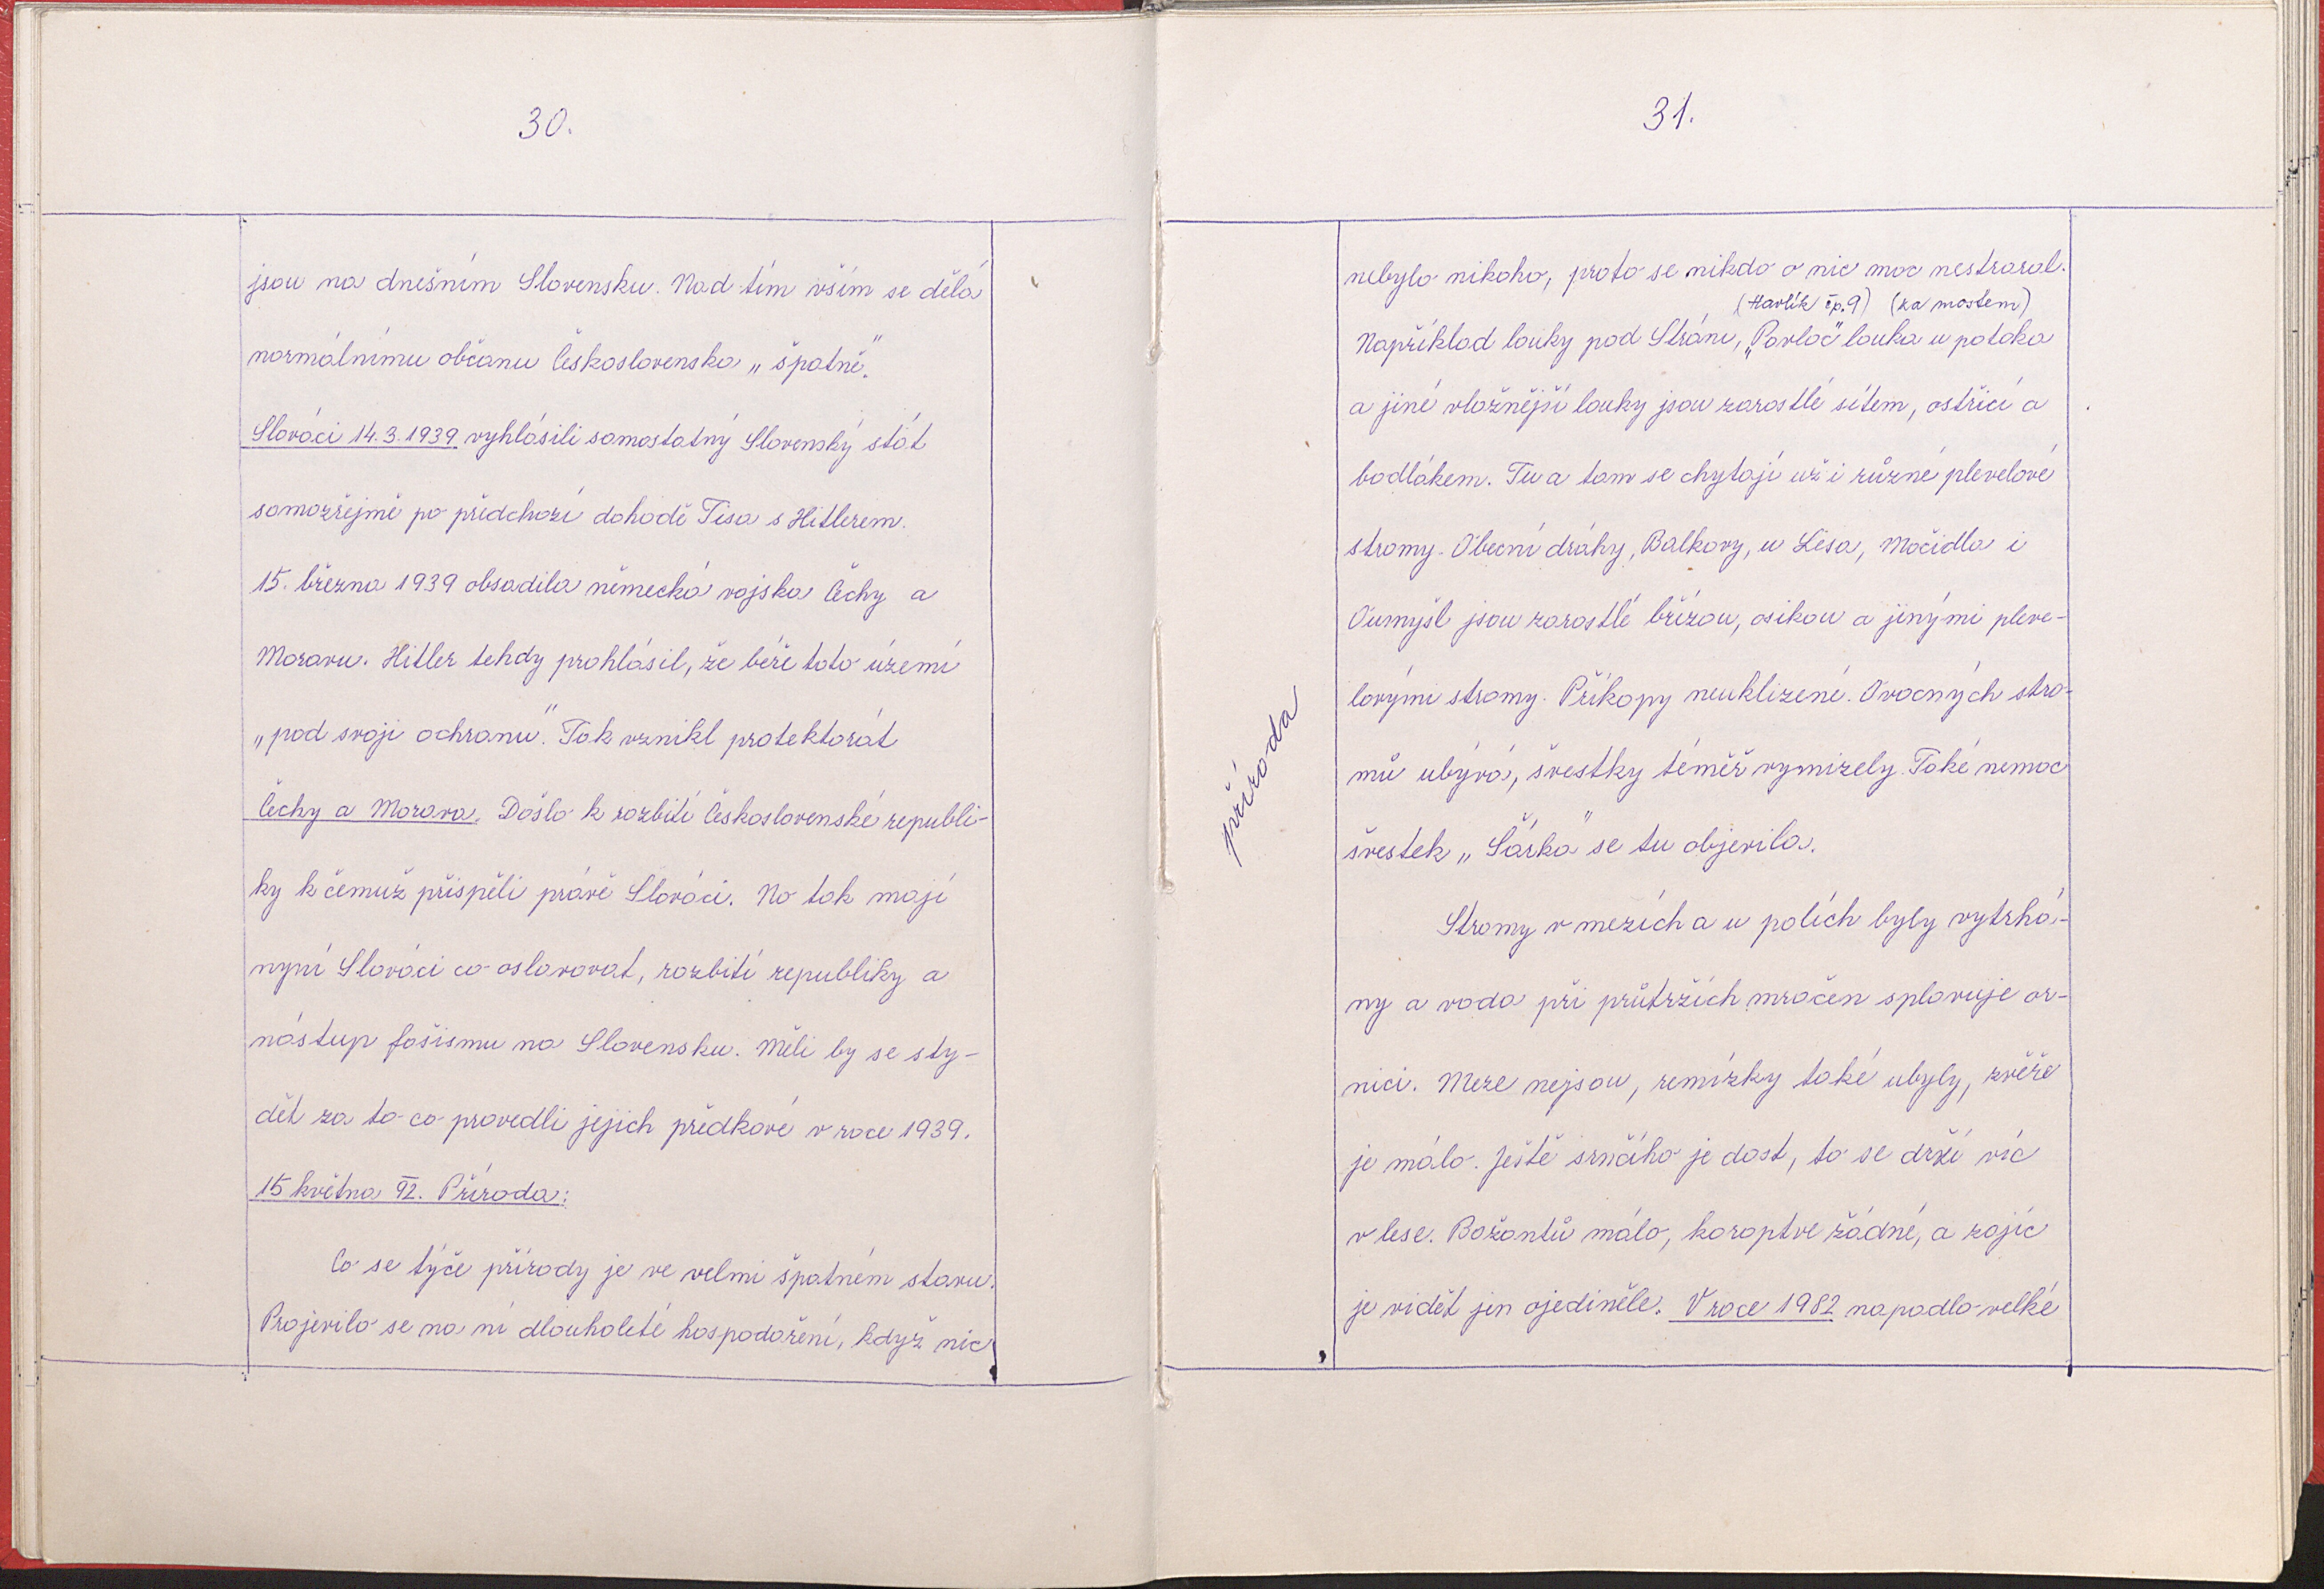 30.
jsou na dnešním Slovensku. Nad tím vším se dělá
normálnímu občanu Československa „špatně".
Slováci 14.3.1939 vyhlásili samostatný Slovenský stát
samozřejmě po předchozí dohodě Tisa s Hitlerem.
15. března 1939 obsadila německá vojska Čechy a
Moravu. Hitler tehdy prohlásil, že béře toto území
„pod svoji ochranu". Tak vznikl protektorát
Čechy a Morava. Došlo k rozbití Československé republi-
ky k čemuž přispěli právě Slováci. No tak mají
nyní Slováci co oslavovat, rozbití republiky a
nástup fašismu na Slovensku. Měli by se sty-
dět za to co provedli jejich předkové v roce 1939.
15 května 92. Příroda:
Co se týče přírody je ve velmi špatném stavu.
Projevilo se na ní dlouholeté hospodaření, když nic
31.
nebylo nikoho, proto se nikdo o nic moc nestraral.
(Havlík čp.9) (za mostem)
Například louky pod Strání, „Pavlač" louka u potoka
a jiné vlažnější louky jsou zarostlé sítem, ostřicí a
bodlákem. Tu a tam se chytají už i různé plevelové
stromy. Obecní dráhy, Balkovy, u Lesa, Močidla i
Oumyšl jsou zarostlé břízou, osikou a jinými pleve-
lovými stromy. Příkopy neuklizené. Ovocných stro-
mů ubývá, švestky téměř vymizely. Také nemoc
švestek „Šárka" se tu objevila.
příroda
Stromy v mezích a u polích byly vytrhá-
ny a voda při průtržích mračen splavuje or-
nici. Meze nejsou, remízky také ubyly, zvěře
je málo. Ještě srnčího je dost, to se drží víc
v lese. Bažantů málo, koroptve žádné, a zajíc
je vidět jen ojediněle. V roce 1982 napadlo velké